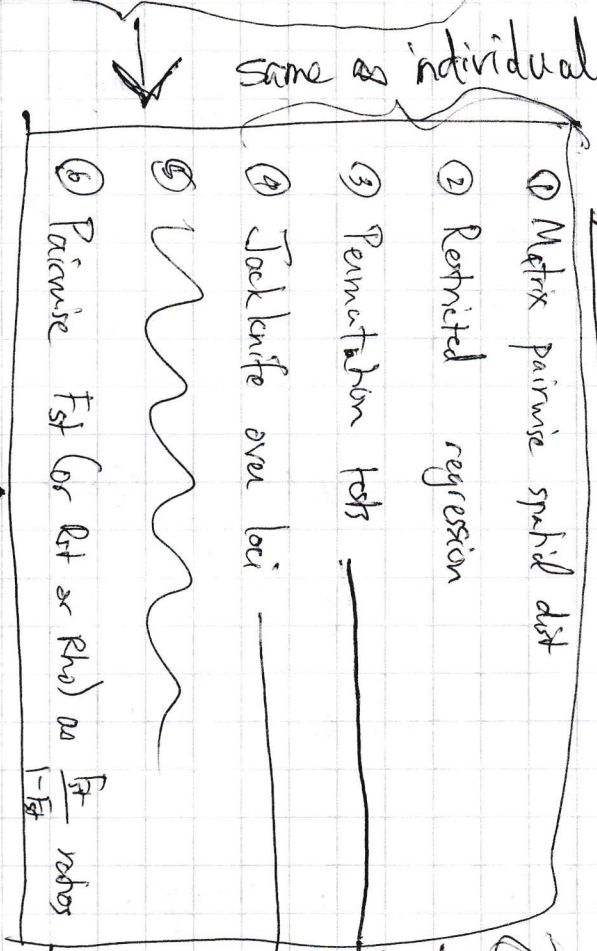 same as individual
① Matrix pairwise spatial dist
② Restricted regression
③ Permutation tests
④ Jackknife over loci
⑤
⑥ Pairwise Fst (or Rst or Rho) as Fst/1-Fst ratios